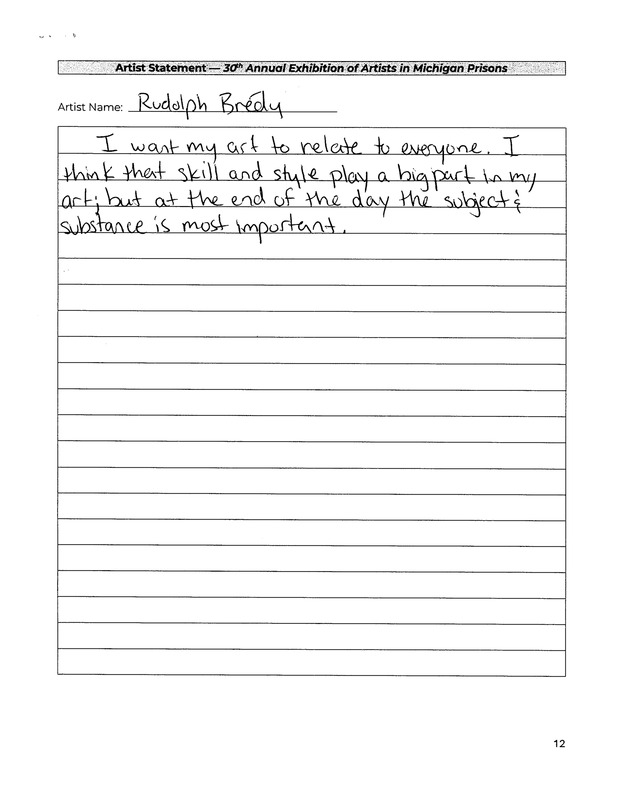 Artist Statement — 30th Annual Exhibition of Artists in Michigan Prisons
Artist Name: Rudolph Brédy
I want my art to relate to everyone. I
think that skill and style play a big part in my
art; but at the end of the day the subject &
substance is most important.
12